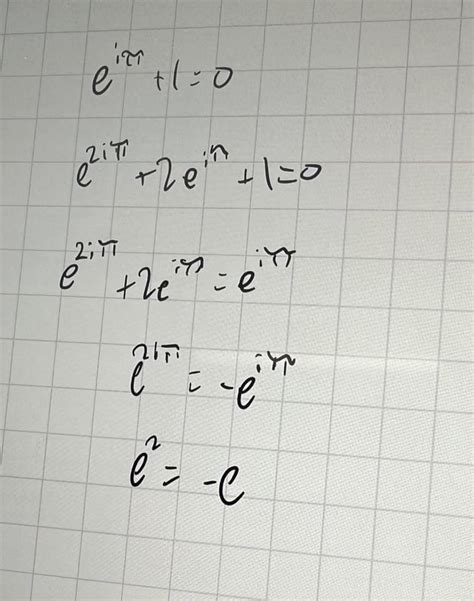 e^{iπ} + 1 = 0
e^{2iπ} + 2e^{iπ} + 1 = 0
e^{2iπ} + 2e^{iπ} = e^{iπ}
e^{2iπ} = -e^{iπ}
e^2 = -e